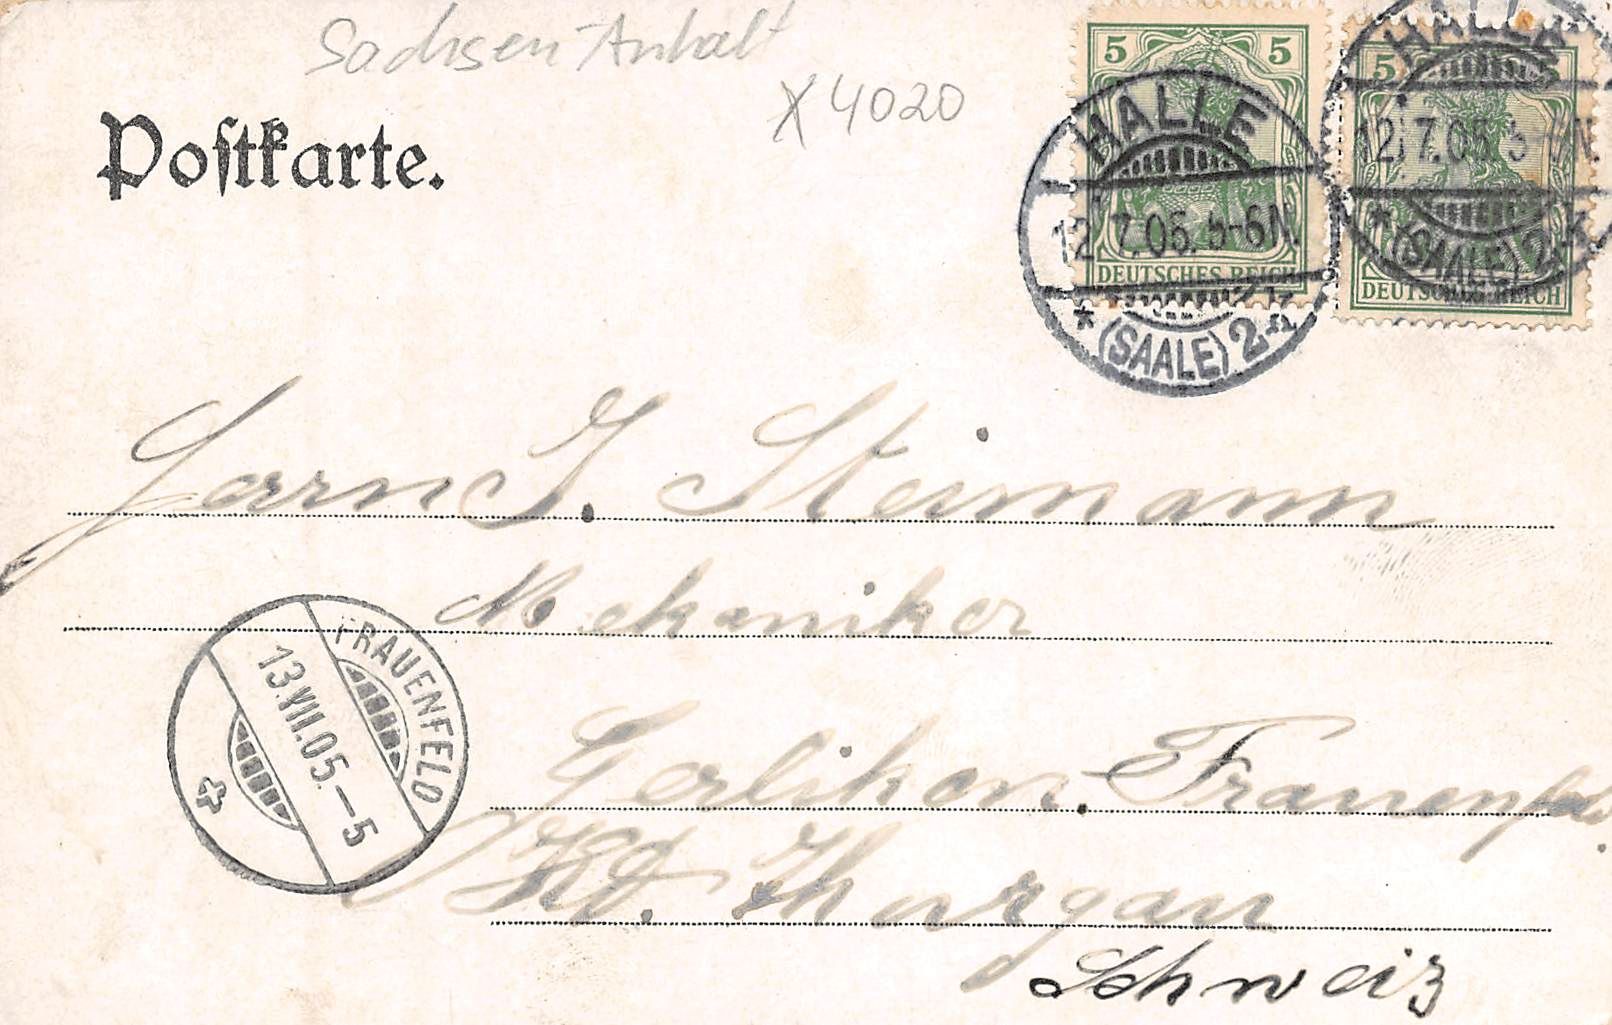 Sachsen-Anhalt
X 4020
Postkarte.
5 5
DEUTSCHES REICH
HALLE
12.7.05. 5-6N.
* (SAALE) 2
5
DEUTSCHES REICH
HALLE
12.7.05. 5-6N.
* (SAALE) 2
Herrn J. Steimann
Mekaniker
FRAUENFELD
13.VII.05.-5
Gerlikon. Frauenfeld
Kt. Thurgau
Schweiz